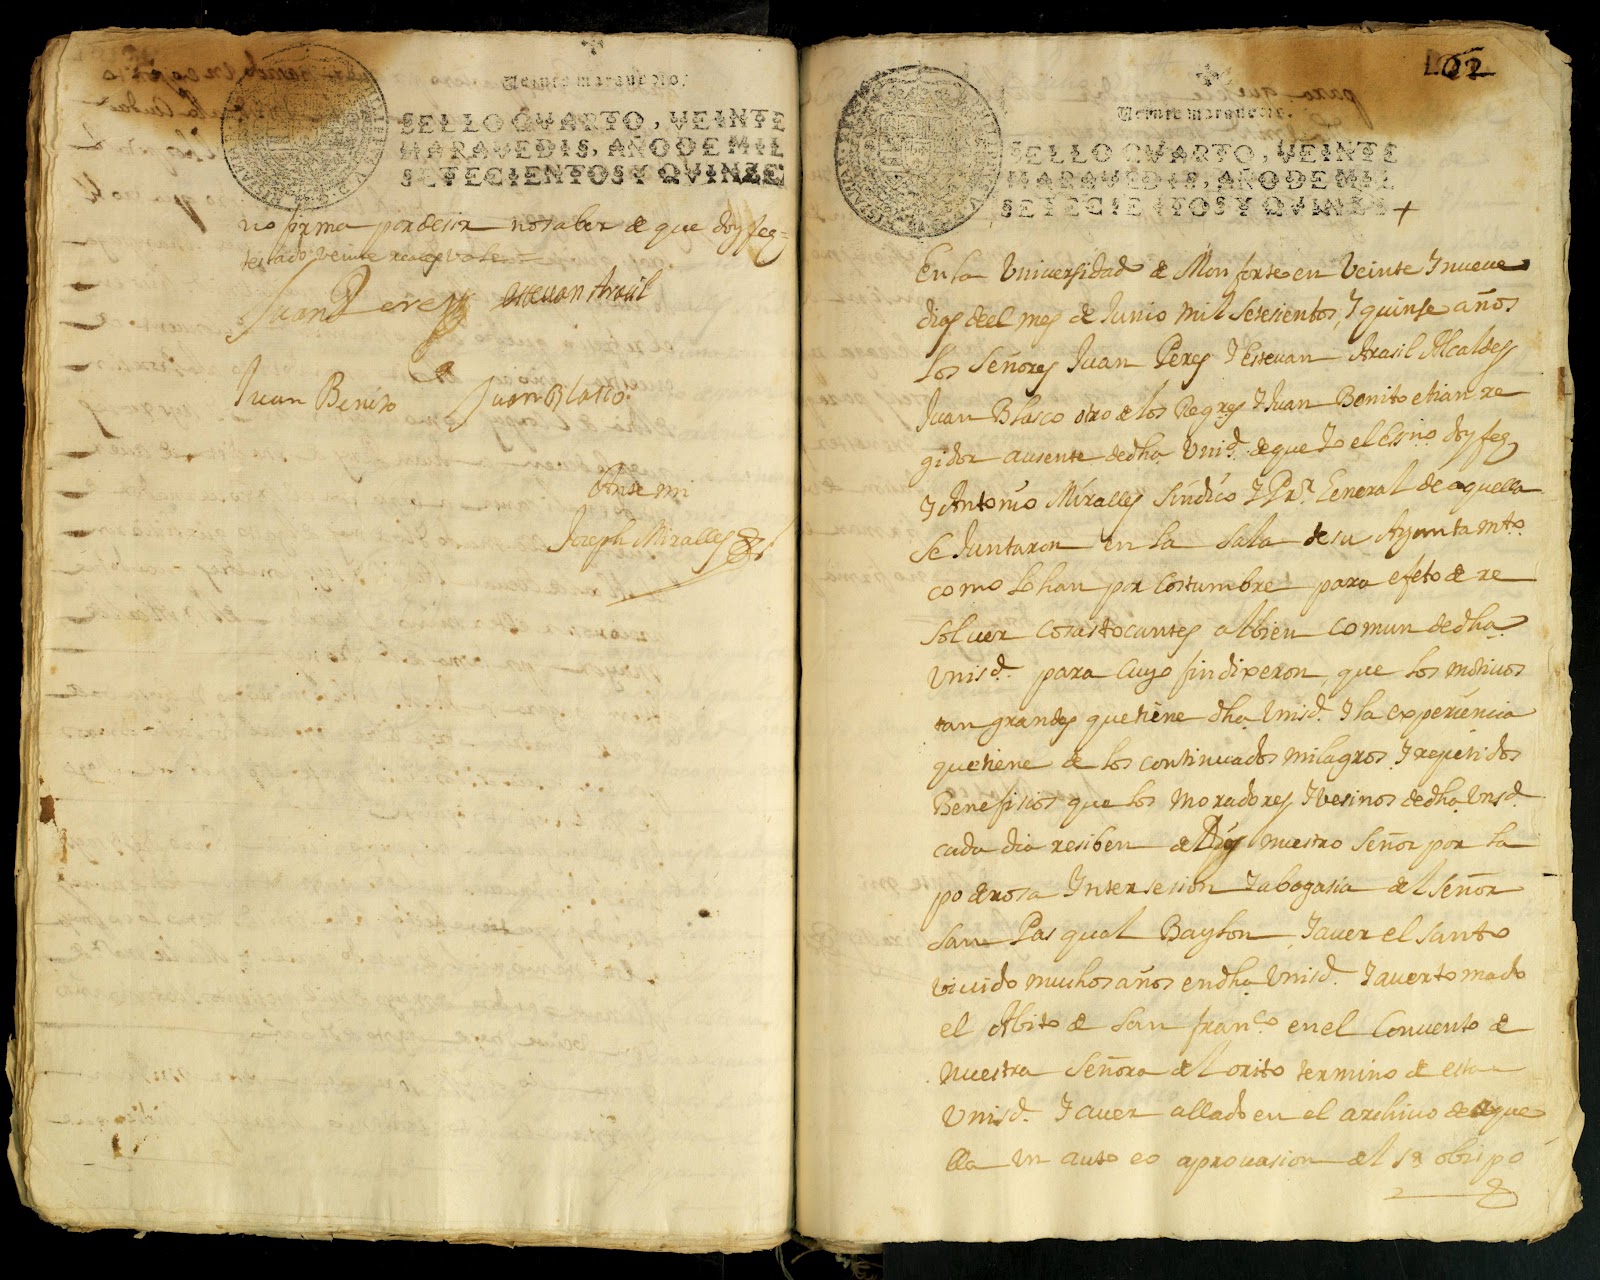 Veinte maravedis.
SELLO QVARTO, VEINTE
MARAVEDIS, AÑO DE MIL
SETECIENTOS Y QVINZE
no firma por desir no saber de que doy feg=
testado: veinte
Juan Perez Estevan Arasil
Juan Benito Juan Blasco.
Ante mi
Joseph Miralles
102
Veinte maravedis.
SELLO QVARTO, VEINTE
MARAVEDIS, AÑO DE MIL
SETECIENTOS Y QVINZE
En la Universidad de Monforte en Veinte I nueve
dias deel mes de Junio mil Setesientos, I quinse años.
Los Señores Juan Peres I Estevan Arasil Alcaldes
Juan Blasco otro de los Regres I Juan Benito etian re
gidor ausente dedha. Unisd. de que Io el Essno. doy feg
I Antonio Miralles Sindico I Pr.r General de aquella
Se Juntaron en la Sala de su Ayuntamto.
como lo han por Costumbre para efeto de re
Solver cosas tocantes al bien comun dedha.
Unisd. para cuyo fin dixeron, que los motivos
tan grandes que tiene dha Unisd. I la experiencia
que tiene de los continuados milagros I repetidos
Benefisios que los Moradores I vesinos dedha Unsd.
cada dia resiben de Dios nuestro Señor por la
poderosa Intersesion I abogasia del Señor
San Pasqual Baylon I aver el Santo
vivido muchos años en dha. Unisd. I aver tomado
el Abito de San Franco. en el Convento de
Nuestra Señora de Lorito termino de esta
Unisd. I aver allado en el archivo de aque
lla un auto eo aprovasion del Sr obispo